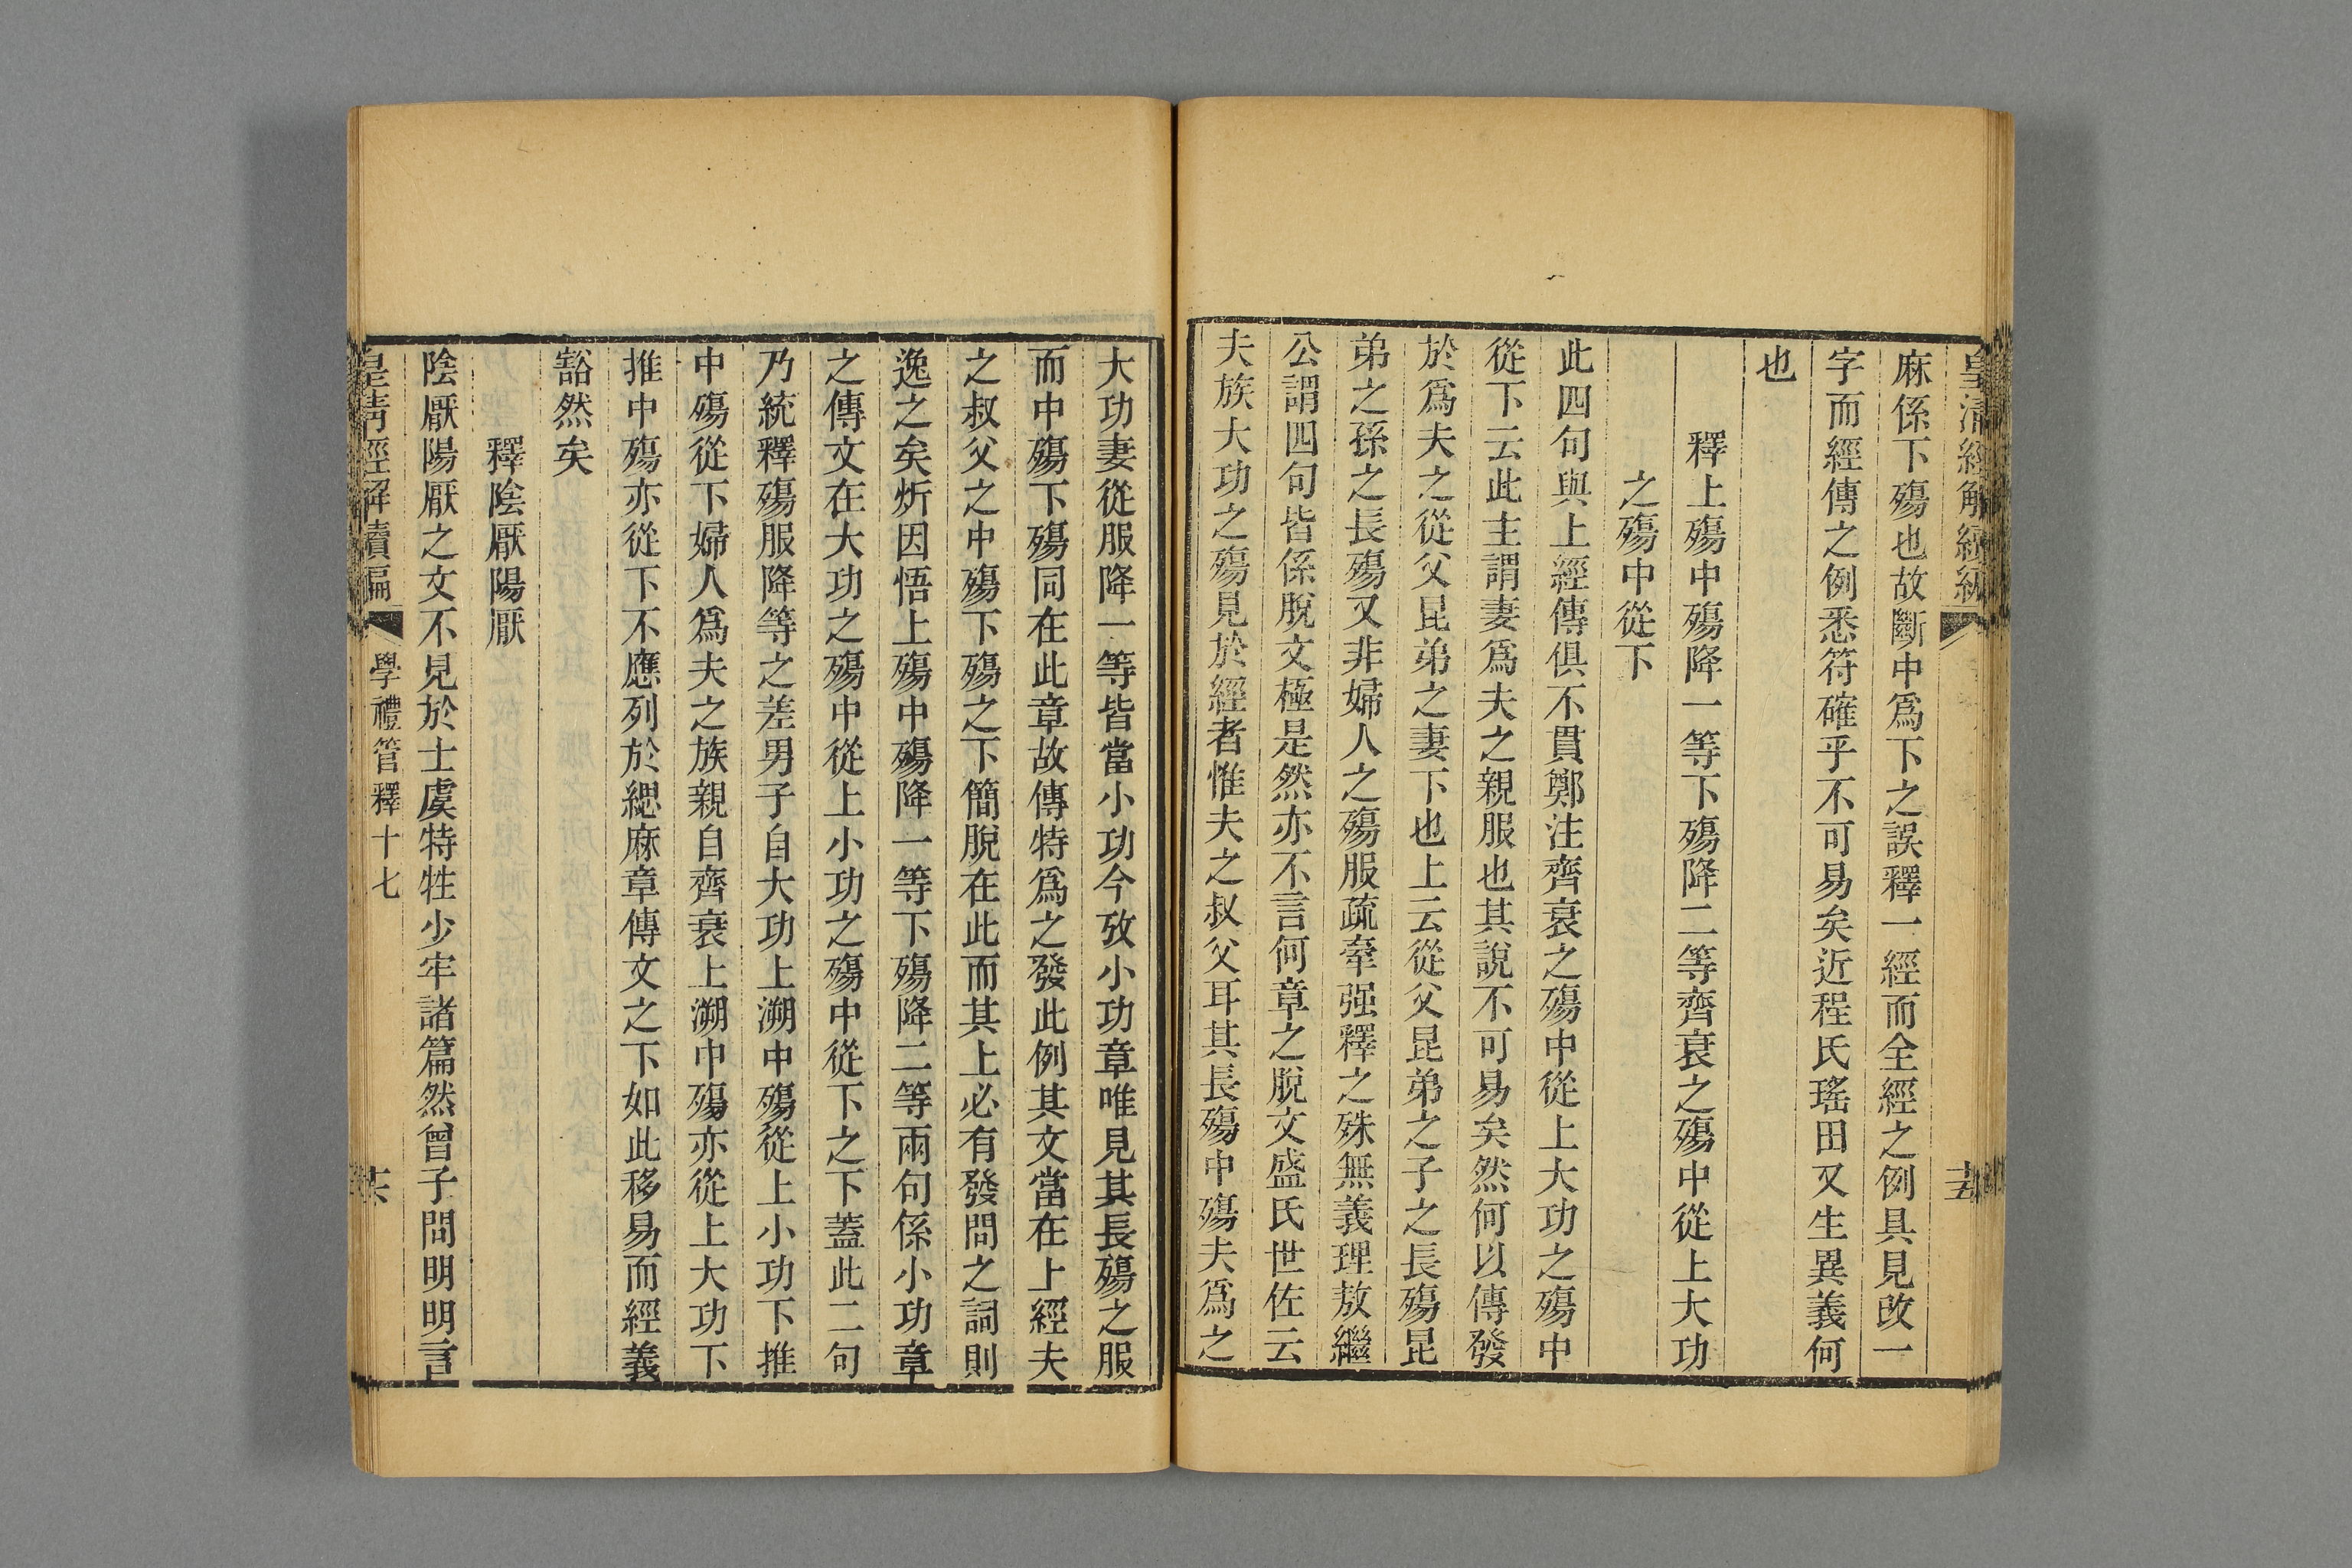 皇清經解續編
麻係下殤也故斷中爲下之誤釋一經而全經之例具見改一
字而經傳之例悉符確乎不可易矣近程氏瑤田又生異義何
也
釋上殤中殤降一等下殤降二等齊衰之殤中從上大功
之殤中從下
此四句與上經傳俱不貫鄭注齊衰之殤中從上大功之殤中
從下云此主謂妻爲夫之親服也其說不可易矣然何以傳發
於爲夫之從父昆弟之妻下也上云從父昆弟之子之長殤昆
弟之孫之長殤又非婦人之殤服疏牽强釋之殊無義理敖繼
公謂四句皆係脫文極是然亦不言何章之脫文盛氏世佐云
夫族大功之殤見於經者惟夫之叔父耳其長殤中殤夫爲之
大功妻從服降一等皆當小功今攷小功章唯見其長殤之服
而中殤下殤同在此章故傳特爲之發此例其文當在上經夫
之叔父之中殤下殤之下簡脫在此而其上必有發問之詞則
逸之矣炘因悟上殤中殤降一等下殤降二等兩句係小功章
之傳文在大功之殤中從上小功之殤中從下之下蓋此二句
乃統釋殤服降等之差男子自大功上溯中殤從上小功下推
中殤從下婦人爲夫之族親自齊衰上溯中殤亦從上大功下
推中殤亦從下不應列於緦麻章傳文之下如此移易而經義
豁然矣
釋陰厭陽厭
陰厭陽厭之文不見於士虞特牲少牢諸篇然曾子問明明言
皇清經解續編 學禮管釋十七